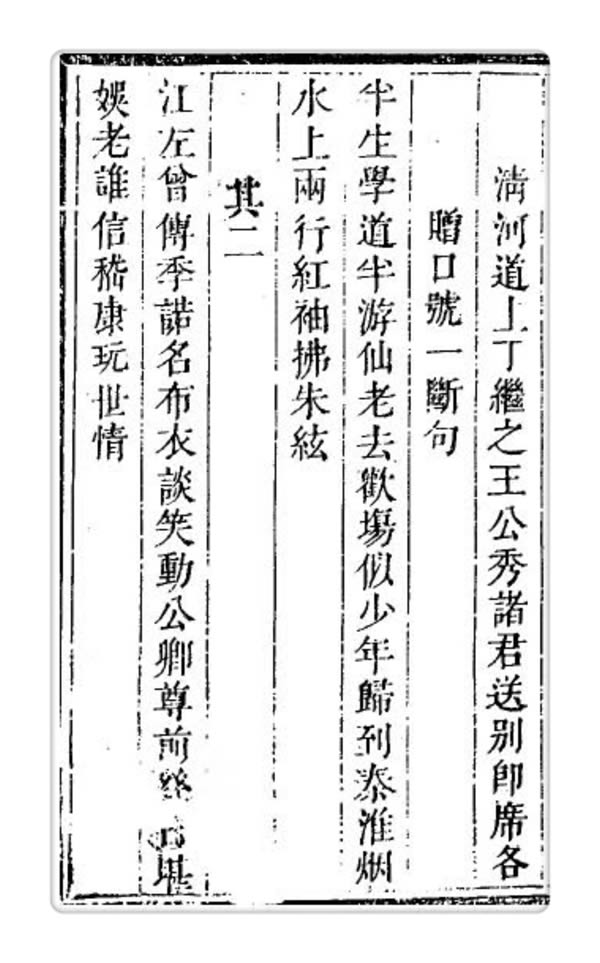 清河道上丁繼之王公秀諸君送別卽席各
贈口號一斷句
半生學道半游仙老去歡塲似少年歸到秦淮烟
水上兩行紅袖拂朱絃
其二
江左曾傳季諾名布衣談笑動公卿尊前絲竹堪
娛老誰信嵇康玩世情